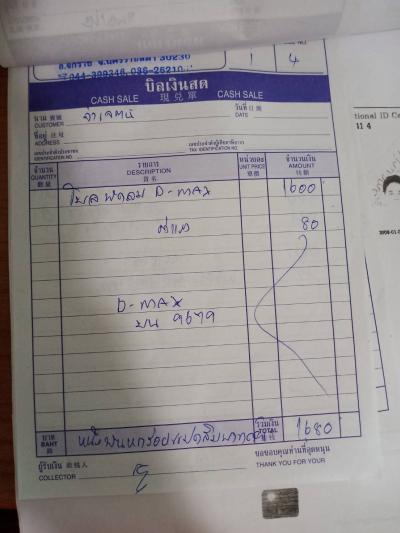 อ.จักราช จ.นครราชสีมา 30230
1 4
บิลเงินสด
CASH SALE 現兌單 CASH SALE
นาม 寶號
CUSTOMER
วันที่ 日期
DATE
ที่อยู่ 住址
ADDRESS
เลขประจำตัวประชาชน
IDENTIFICATION NO.
เลขประจำตัวผู้เสียภาษีอากร
TAX IDENTIFICATION NO.
จำนวน
QUANTITY
數量
รายการ
DESCRIPTION
貨名
หน่วยละ
UNIT PRICE
單價
จำนวนเงิน
AMOUNT
銀碼
โบลพัดลม D-MAX 1600
80
D-MAX
บน 9679
บาท
BAHT
銖
หนึ่งพันหกร้อยแปดสิบบาทถ้วน
รวมเงิน
TOTAL
1680
ผู้รับเงิน 收銀人
COLLECTOR
ขอขอบคุณท่านที่อุดหนุน
THANK YOU FOR YOUR
tional ID C
11 4